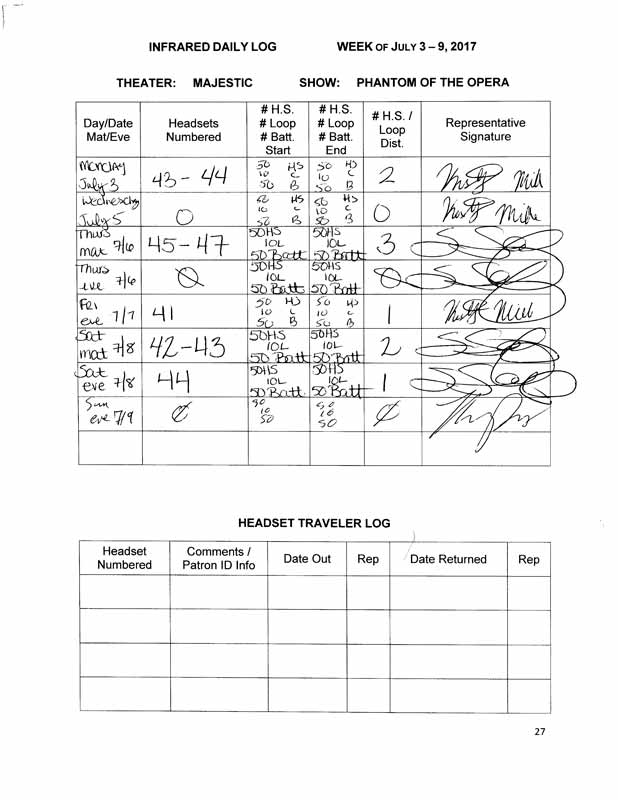 INFRARED DAILY LOG WEEK OF JULY 3 – 9, 2017
THEATER: MAJESTIC SHOW: PHANTOM OF THE OPERA
Day/Date Mat/Eve Headsets Numbered # H.S. # Loop # Batt. Start # H.S. # Loop # Batt. End # H.S. / Loop Dist. Representative Signature
Monday July 3 43 - 44 50 HS 10 L 50 B 50 HS 10 L 50 B 2
Wednesday July 5 0 50 HS 10 L 50 B 50 HS 10 L 50 B 0
Thurs mat 7/6 45 - 47 50HS 10L 50 Batt 50HS 10L 50 Batt 3
Thurs eve 7/6 0 50HS 10L 50 Batt 50HS 10L 50 Batt 0
Fri eve 7/7 41 50 HS 10 L 50 B 50 HS 10 L 50 B 1
Sat mat 7/8 42-43 50HS 10L 50 Batt 50HS 10L 50 Batt 2
Sat eve 7/8 44 50HS 10L 50 Batt 50HS 10L 50 Batt 1
Sun eve 7/9 0 50 10 50 50 10 50 0
HEADSET TRAVELER LOG
Headset Numbered Comments / Patron ID Info Date Out Rep Date Returned Rep
27